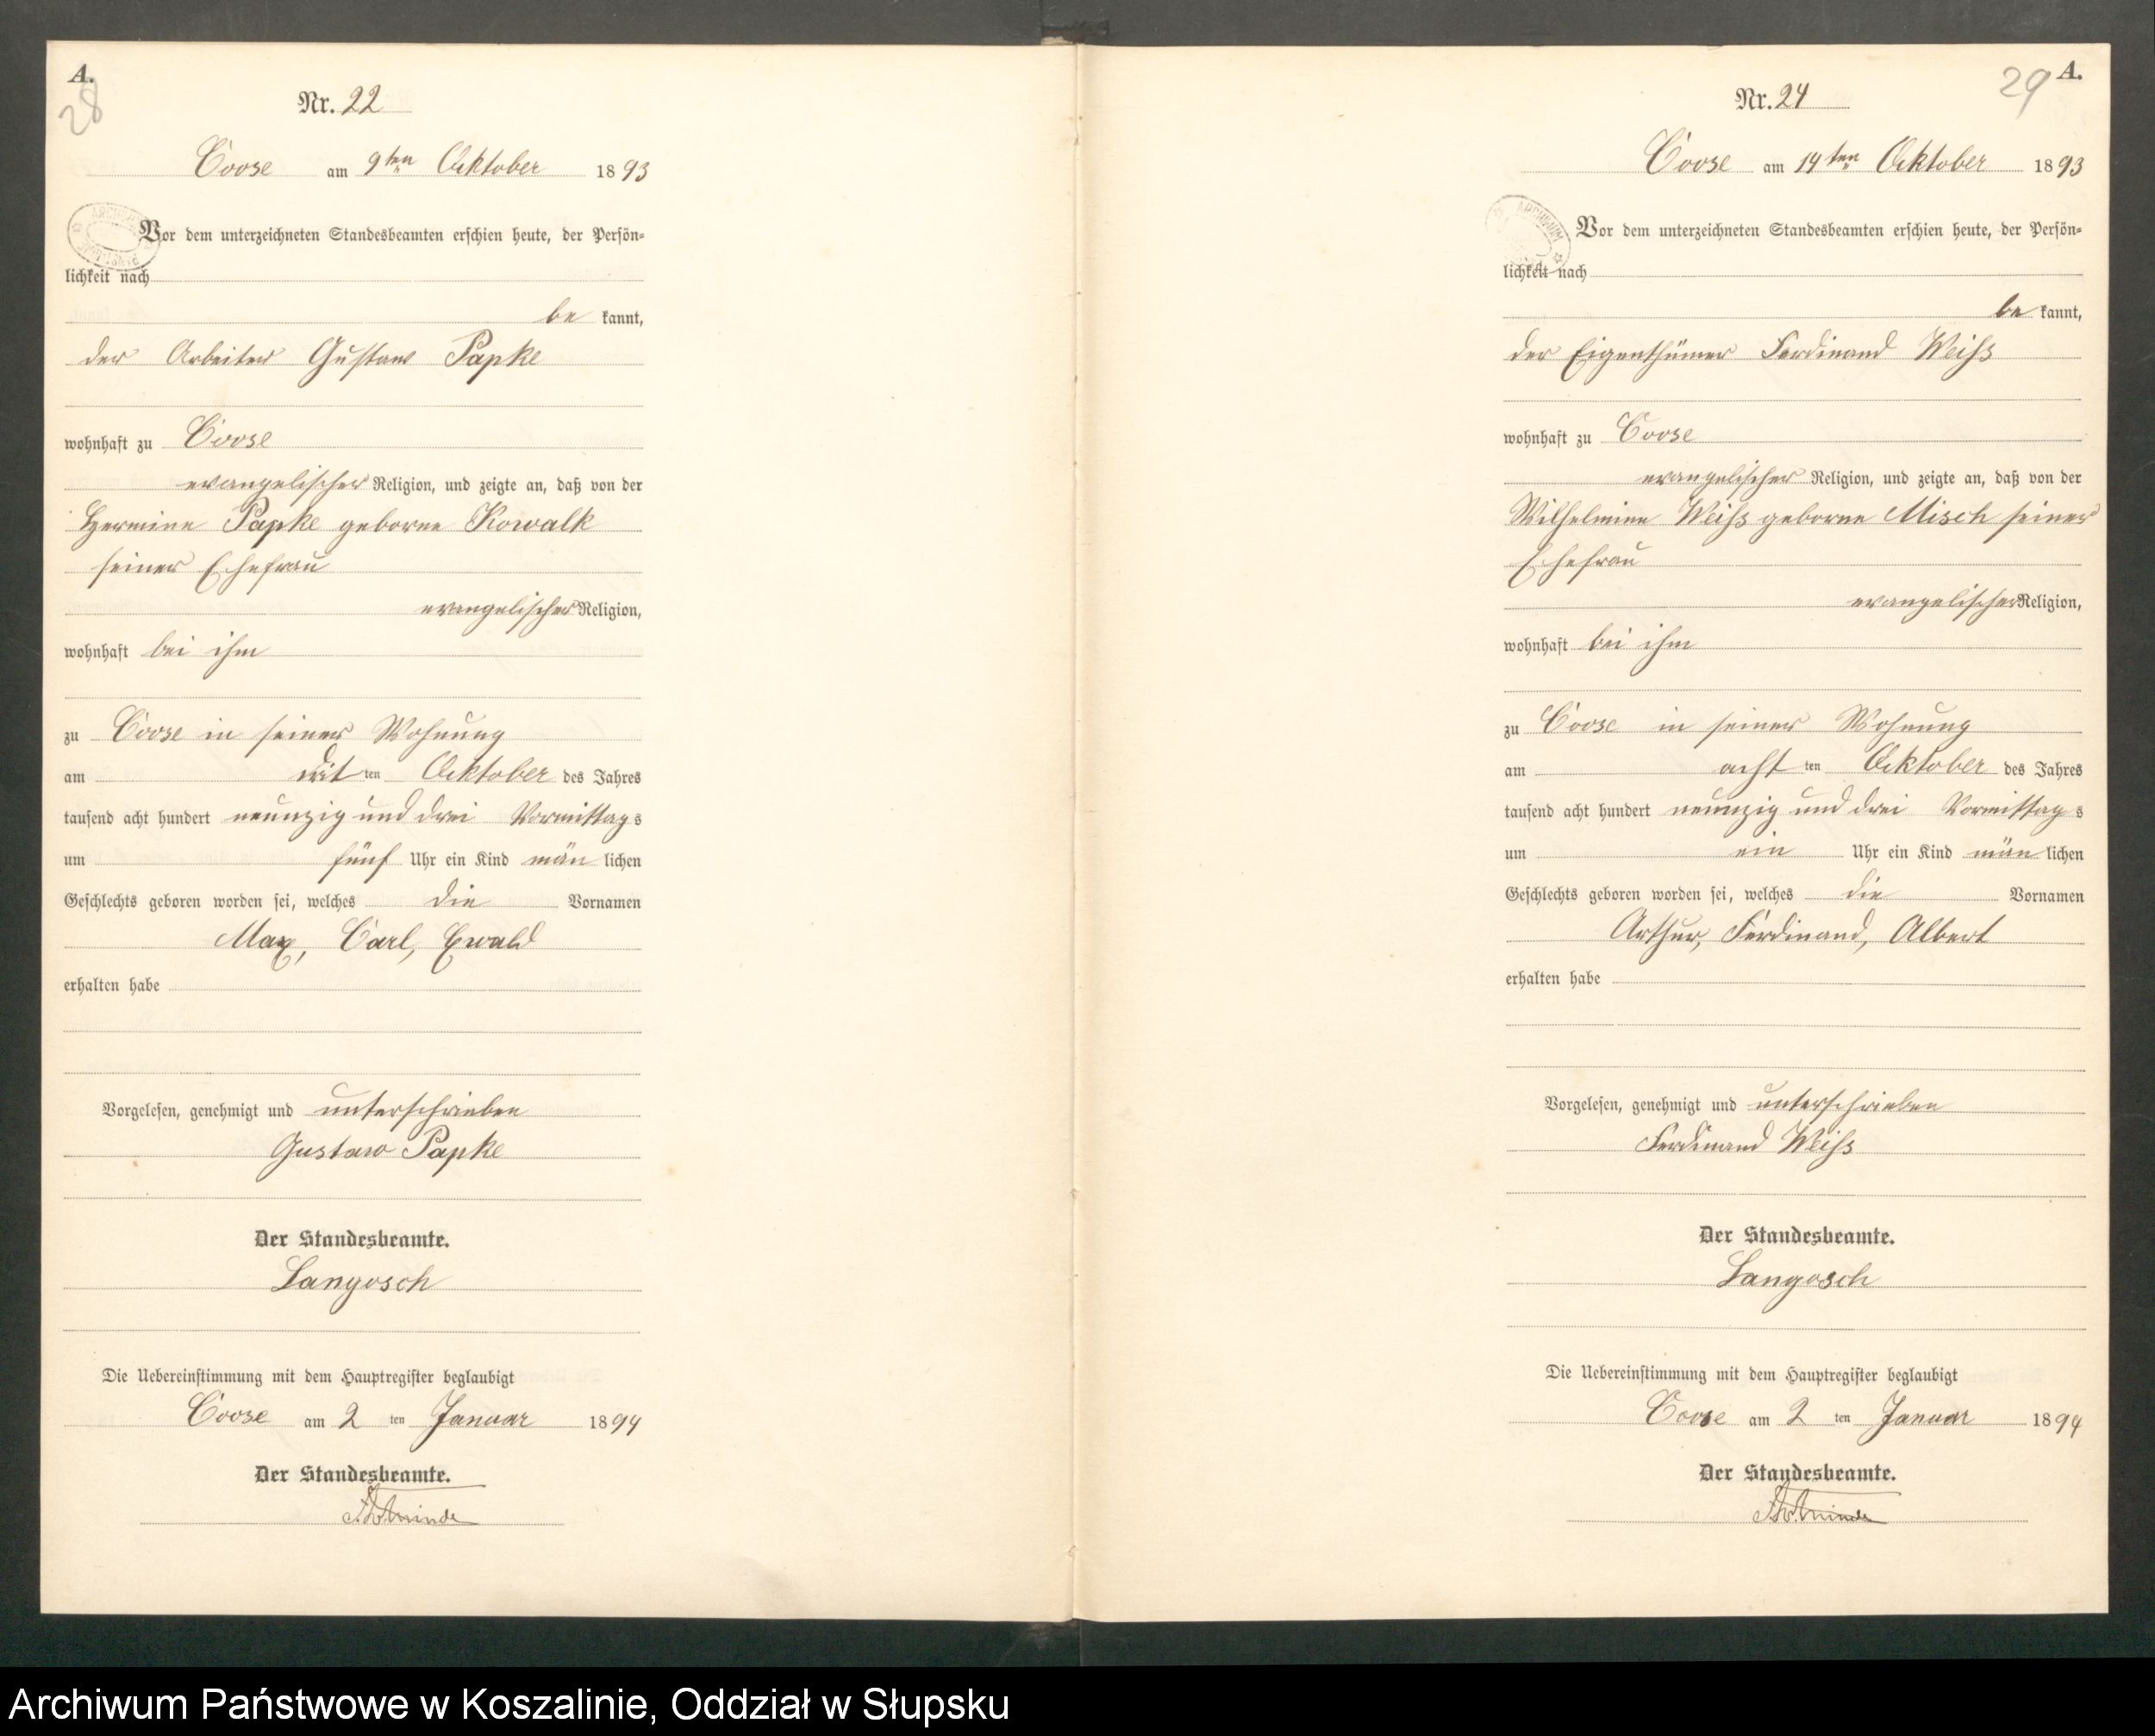 A.
28
Nr. 22
Coose am 9ten Oktober 1893
Vor dem unterzeichneten Standesbeamten erschien heute, der Persön=
lichkeit nach
be kannt,
der Arbeiter Gustav Papke
wohnhaft zu Coose
evangelischer Religion, und zeigte an, daß von der
Hermine Papke geborne Kowalk
seiner Ehefrau
evangelischer Religion,
wohnhaft bei ihm
zu Coose in seiner Wohnung
am drit ten Oktober des Jahres
tausend acht hundert neunzig und drei Vormittags
um fünf Uhr ein Kind män lichen
Geschlechts geboren worden sei, welches die Vornamen
Max, Carl, Ewald
erhalten habe
Vorgelesen, genehmigt und unterschrieben
Gustav Papke
Der Standesbeamte.
Langosch
Die Uebereinstimmung mit dem Hauptregister beglaubigt
Coose am 2 ten Januar 1894
Der Standesbeamte.
A.
29
Nr. 24
Coose am 14ten Oktober 1893
ARCHIWUM
Vor dem unterzeichneten Standesbeamten erschien heute, der Persön=
lichkeit nach
be kannt,
der Eigenthümer Ferdinand Weiß
wohnhaft zu Coose
evangelischer Religion, und zeigte an, daß von der
Wilhelmine Weiß geborne Misch seiner
Ehefrau
evangelischer Religion,
wohnhaft bei ihm
zu Coose in seiner Wohnung
am acht ten Oktober des Jahres
tausend acht hundert neunzig und drei Vormittags
um ein Uhr ein Kind män lichen
Geschlechts geboren worden sei, welches die Vornamen
Arthur, Ferdinand, Albert
erhalten habe
Vorgelesen, genehmigt und unterschrieben
Ferdinand Weiß
Der Standesbeamte.
Langosch
Die Uebereinstimmung mit dem Hauptregister beglaubigt
Coose am 2 ten Januar 1894
Der Standesbeamte.
Archiwum Państwowe w Koszalinie, Oddział w Słupsku